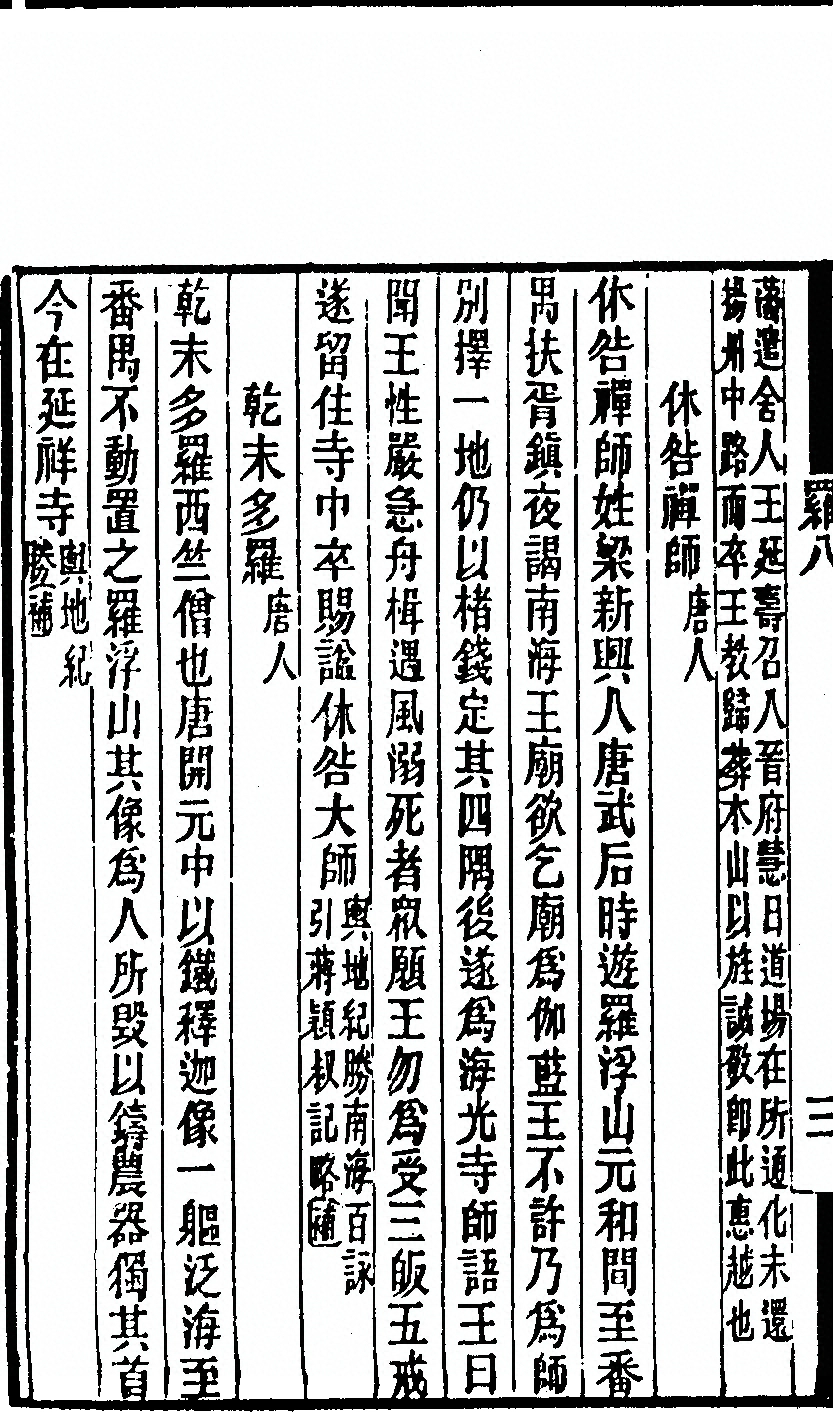 藩遣舍人王延壽召入晉府慧日道場在所通化未還
揚州中路而卒王教歸葬本山以旌誠敬卽此惠越也
休咎禪師唐人
休咎禪師姓梁新興人唐武后時遊羅浮山元和間至番
禺扶胥鎮夜謁南海王廟欲乞廟爲伽藍王不許乃爲師
別擇一地仍以楮錢定其四隅後遂爲海光寺師語王曰
聞王性嚴急舟楫遇風溺死者眾願王勿爲受三皈五戒
遂留住寺中卒賜諡休咎大師輿地紀勝南海百詠
引蔣穎叔記略補
乾末多羅唐人
乾末多羅西竺僧也唐開元中以鐵釋迦像一軀泛海至
番禺不動置之羅浮山其像爲人所毀以鑄農器獨其首
今在延祥寺輿地紀
勝補
羅八
三